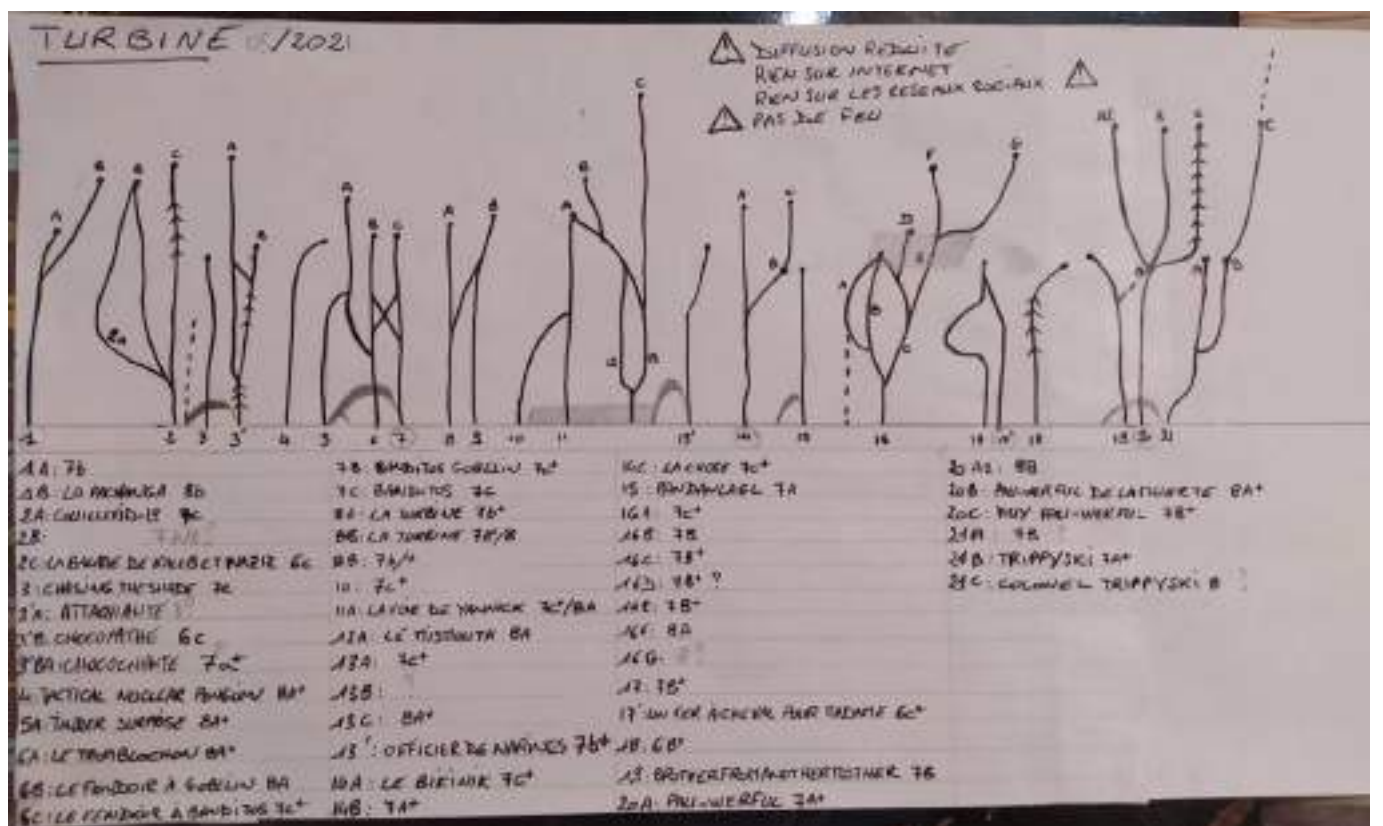 TURBINE /2021
DIFFUSION REDUITE
RIEN SUR INTERNET
RIEN SUR LES RESEAUX SOCIAUX
PAS DE FEU
1A: 7b
1B: LA PACHANGA 8b
2A: 7c
2B:
2C: LA BALADE DE 6c
3: CHASING THE SHADE 7c
3'A: ATTAQUANTE
3'B: CHOCOPATHE 6c
3'BA: 7a+
4: TACTICAL NUCLEAR PENGUIN 8A+
5A: TINDER SURPRISE 8A+
6A: LE TROMBLOCHON 8A+
6B: LE FENDOIR A GOBELIN 8A
6C: LE FENDOIR A BANDITOS 7c+
7B: BANDITOS GOBELIN 7c+
7C: BANDITOS 7c
8A: LA TURBINE 7b+
8B: LA TURBINE 7B/B
9B: 7b/+
10: 7c+
11A: LA VOIE DE YANNICK 7c+/8A
12A: LE 8A
13A: 7c+
13B:
13C: 8A+
13': OFFICIER DE NARINES 7b+
14A: LE 7c+
14B: 7A+
14C: LA CHOSE 7c+
15: 7A
16A: 7c+
16B: 7B
16C: 7B+
16D: 7B+ ?
16E: 7B+
16F: 8A
16G:
17: 7B+
17': UN FER A CHEVAL POUR MADAME 6c+
18: 6B+
19: BROTHERFROMANOTHERMOTHER 7B
20A: PALI-WERFUL 7A+
20A2: 8B
20B: DE LA MUERTE 8A+
20C: MUY PALI-WERFUL 7B+
21A: 7B
21B: TRIPPYSKI 7A+
21C: COLONEL TRIPPYSKI 8 ?